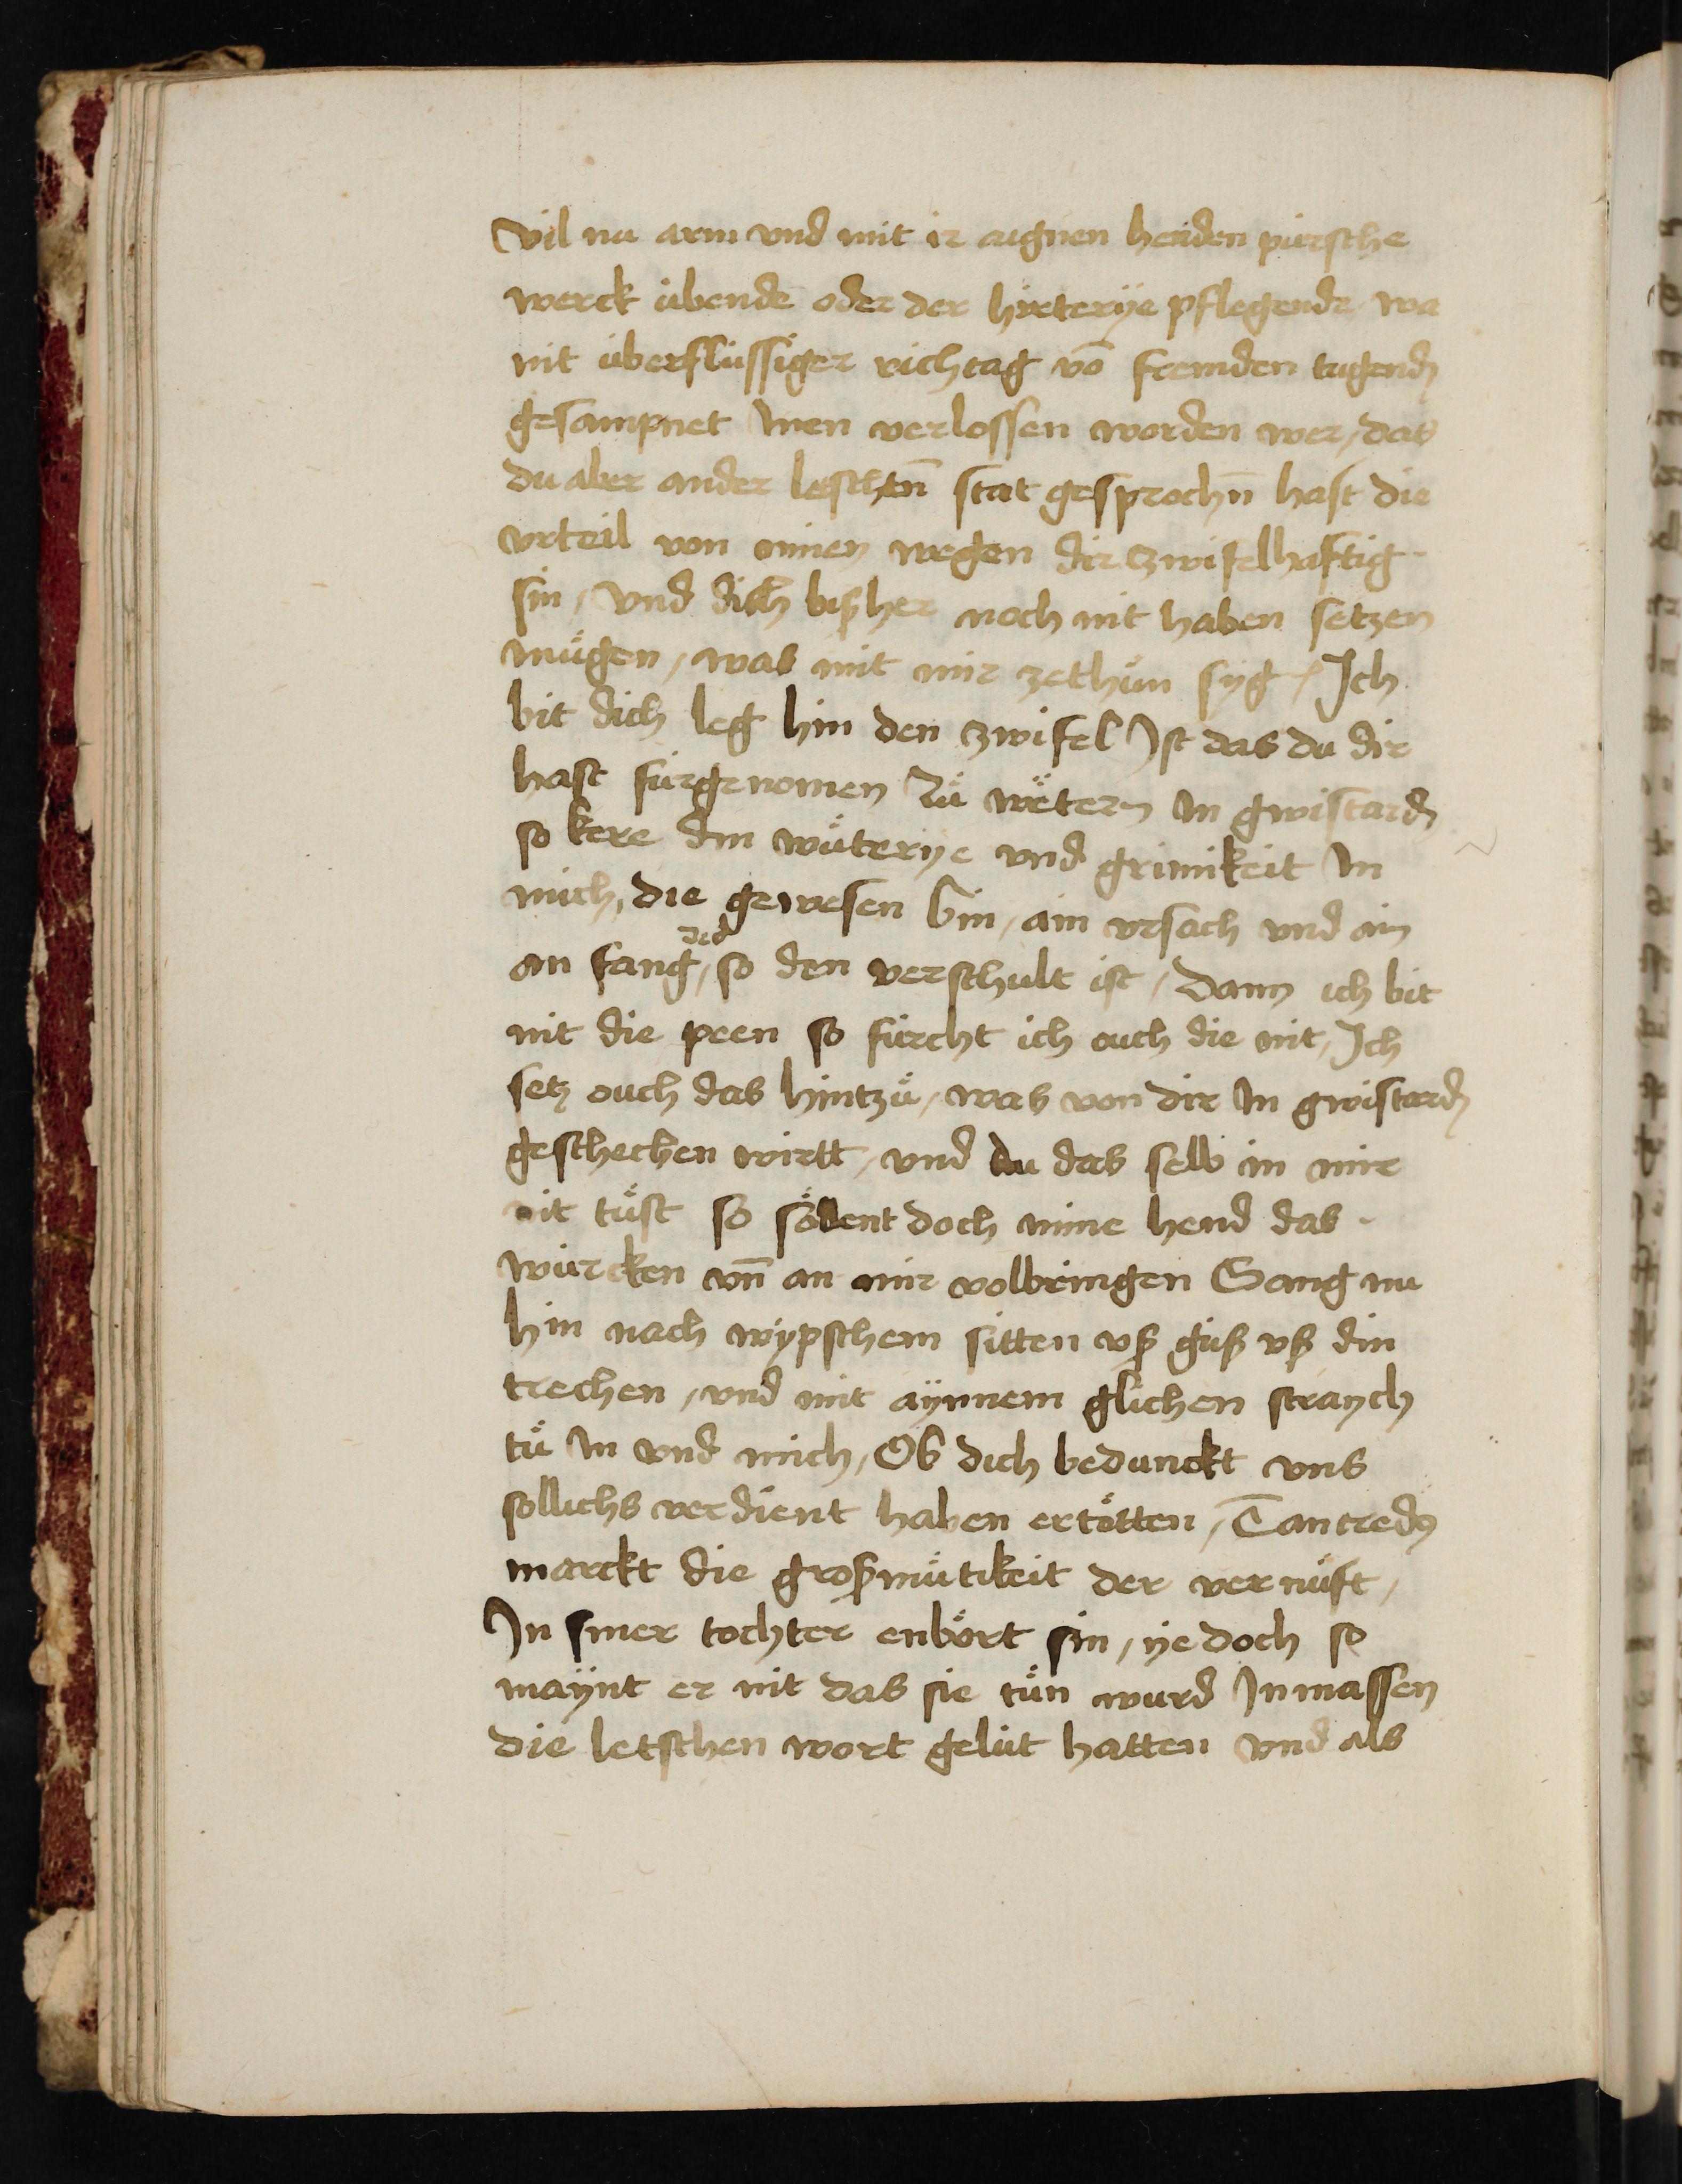 vil nu arm vnd mit ir aignen henden pürsche
werck übende oder der hirterÿe pflegende wa
nit überflüssiger richtag võ fremden tugendẽ
gesampnet Inen verlossen worden wer / das
du aber ander letschten̄ stat gesprochn̄ hast die
vrteil von minen wegen dir zwifelhaftig
sin / vnd dich bisher noch nit haben setzen
mügen / was mit mir zethün syg / Ich
bit dich leg hin den zwifel Ist das du dir
hast fürgenomen zü wëtern In gwistardẽ
so kere din wüterye vnd grimikeit In
mich, die gewesen bin / ain vrsach vnd ain
an fang / ded so den verschult ist / Dann ich bit
nit die peen so fürcht ich ouch die nit / Ich
setz ouch das hintzü / was von dir In gwistardẽ
geschechen wirtt / vnd du das selb in mir
nit tüst so söllent doch mine hend das
würcken vn̄ an mir volbringen Gang nu
hin nach wÿpschem sitten vß güß vß din
trechen / vnd mit aÿnnem glichen straych
tü In vnd mich / Ob dich bedunckt vns
sollichs verdient haben ertötten / Tancredꝰ
marckt die großmütikeit der vernüft /
In siner tochter enbört sin / ye doch so
maÿnt er nit das sie tün wurd Inmassen
die letschen wort gelüt hatten vnd als